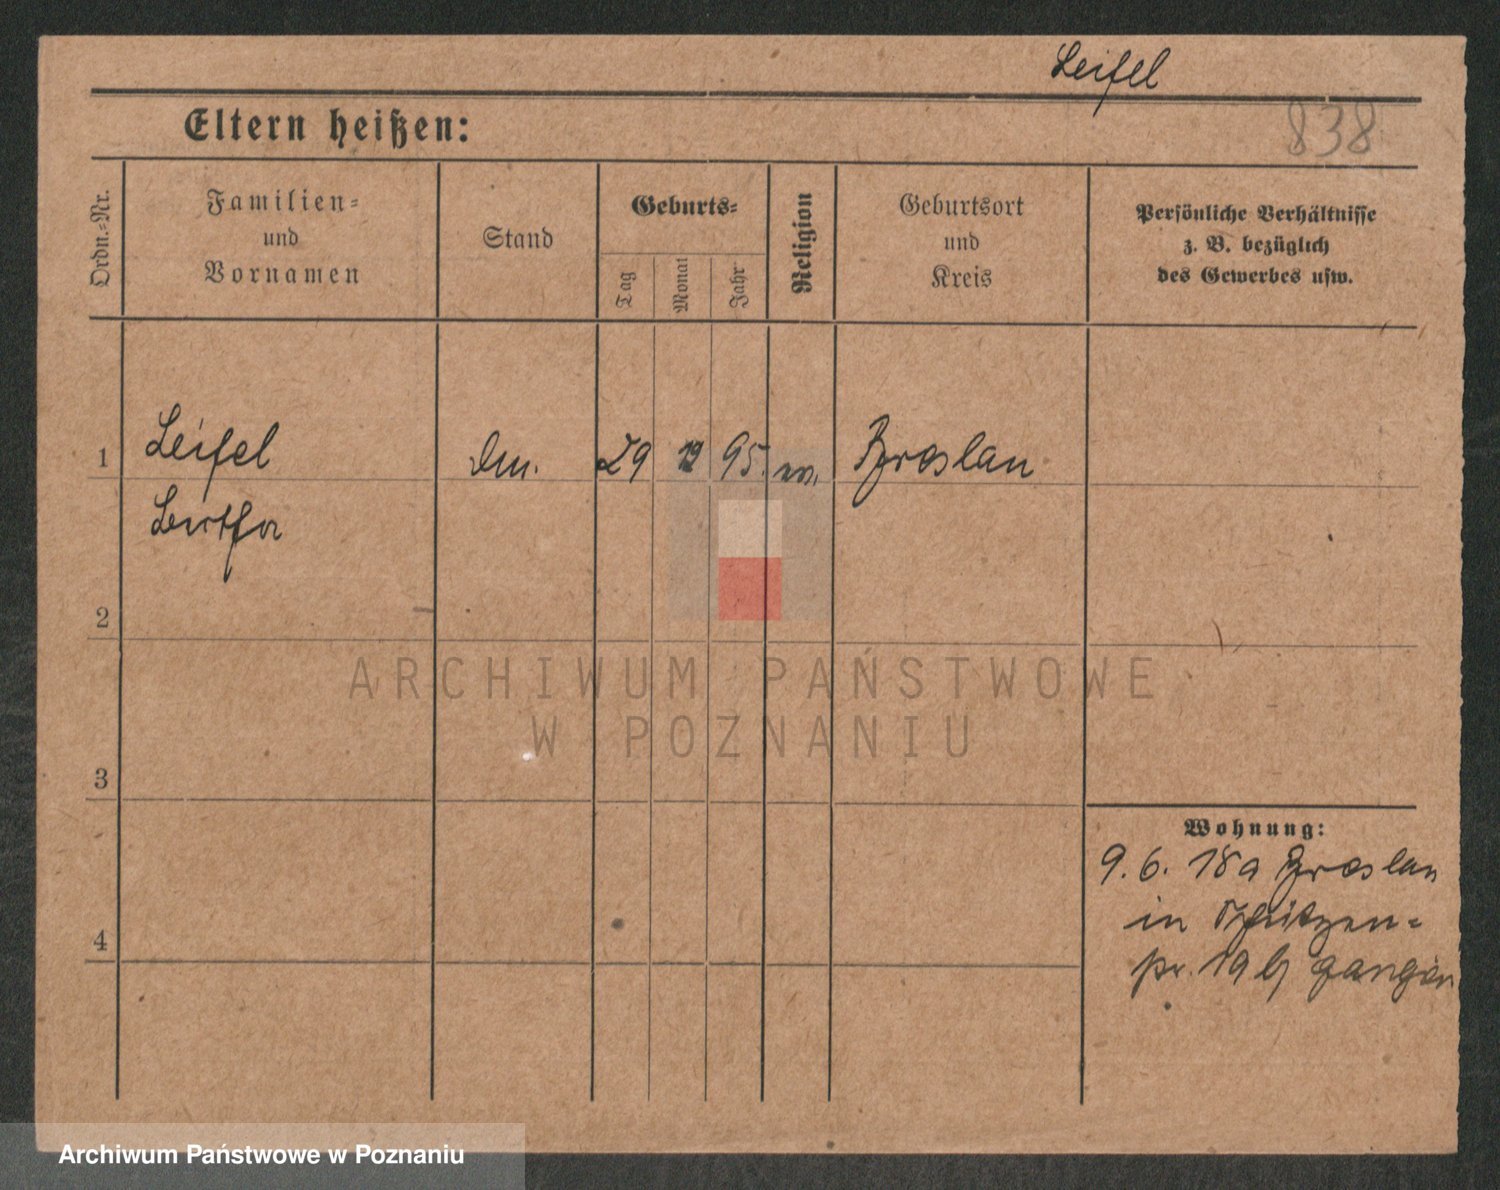 Leifel
838
Eltern heißen:
Ordn.-Nr.
Familien-
und
Vornamen
Stand
Geburts-
Tag
Monat
Jahr
Religion
Geburtsort
und
Kreis
Persönliche Verhältnisse
z. B. bezüglich
des Gewerbes usw.
1
Leifel
29
12
95.
Breslau
2
ARCHIWUM PAŃSTWOWE
W POZNANIU
3
Wohnung:
9. 6. 18 a Breslau
in Schützen-
19
4
Archiwum Państwowe w Poznaniu